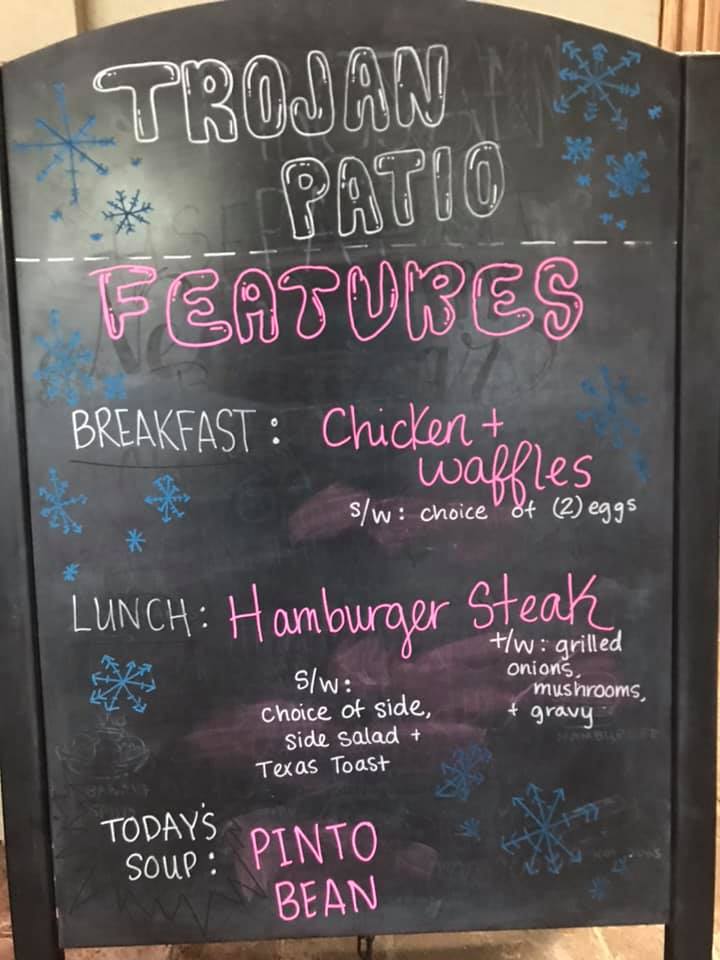 TROJAN
PATIO
FEATURES
BREAKFAST: Chicken +
waffles
s/w: choice of (2) eggs
LUNCH: Hamburger Steak
t/w: grilled
onions,
mushrooms,
+ gravy
s/w:
choice of side,
side salad +
Texas Toast
TODAY'S
SOUP:
PINTO
BEAN